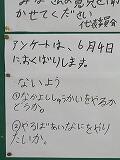 みなさんの意見を聞
かせてください
代表委員会
アンケートは、6月4日
におくばりします。
ないよう
①なかよししゅうかいをやるか
どうか。
②やるばあいなにをやり
たいか。